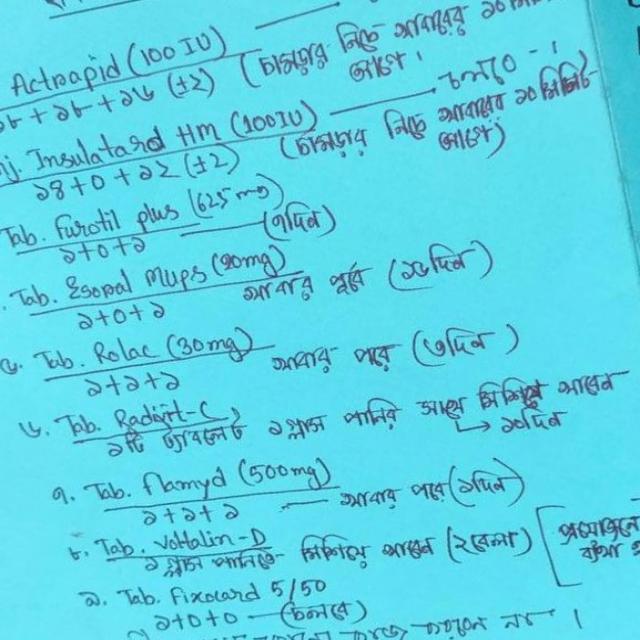 Actrapid (100 IU) (চামড়ার নিচে খাবারের ১০ মিনিট
১৮ + ১৮ + ১৬ (±2) আগে।
চলবে - ।
Inj. Insulatard HM (100IU) (চামড়ার নিচে খাবারের ১০ মিনিট
২৪+0+২২ (±2) আগে)
Tab. Furotil plus (625 mg)
১+0+১ (৭দিন)
Tab. Esopal MUPS (20mg)
১+0+১ খাবার পূর্বে (১৫দিন)
Tab. Rolac (30mg) খাবার পরে (৩দিন)
১+১+১
৬. Tab. Radivit-C
১টি ট্যাবলেট ১ গ্লাস পানির সাথে মিশিয়ে খাবেন
↳ ১০দিন
৭. Tab. flamyd (500mg)
১+১+১ খাবার পরে
৮. Tab. Voltalin-D
১ গ্লাস পানিতে মিশিয়ে খাবেন (২বেলা) [প্রয়োজনে
ব্যথা
৯. Tab. Fixocard 5/50
১+0+0 (চলবে)